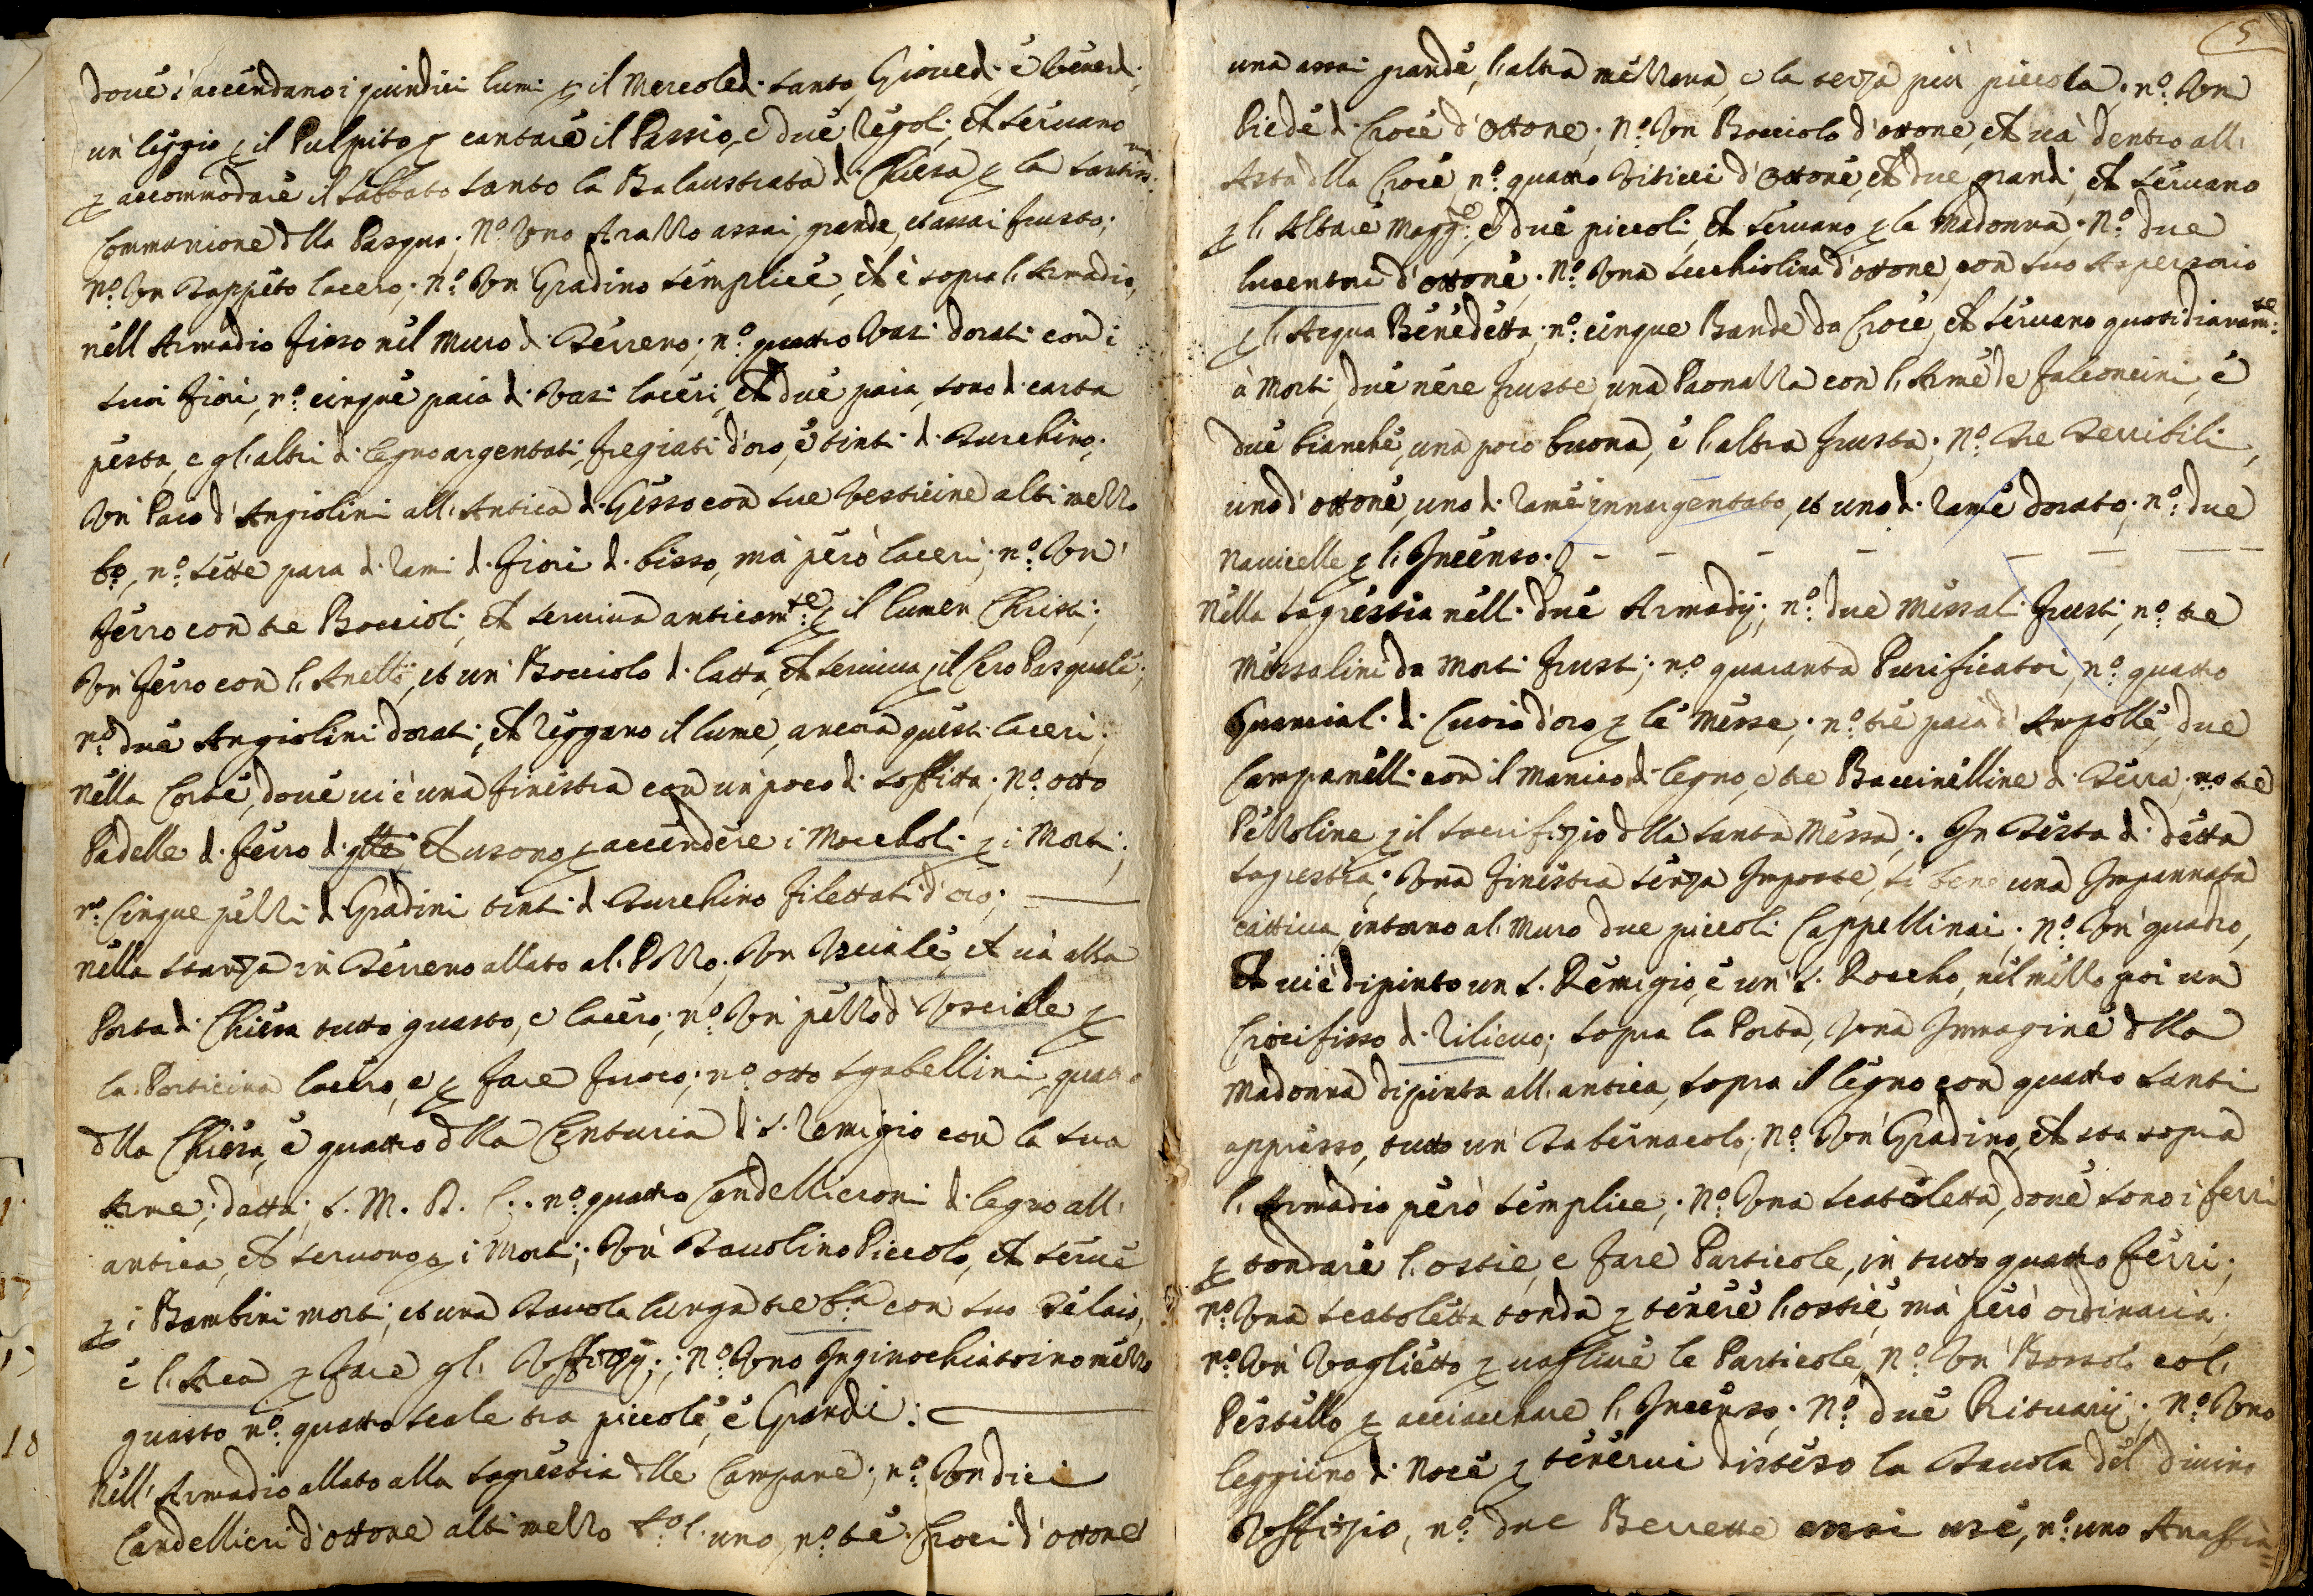 doue s'accendano i quindici lumi p il Mercoled. Santo, Gioued. e Venerd.;
un leggio p il Pulpito p cantare il Passio, e due Regol. ch seruano
p accommodare il Sabbato Santo la Balaustrata d. Chiesa p la Santiss.ma
Communione dlla Pasqua; No. Uno Arazzo assai grande, et assai frusto;
no. Un Tappeto lacero; no. Un Gradino semplice, ch è sopra l. Armadio,
nell Armadio fisso nel Muro d. Terreno; no. quattro Vasi dorati con i
suoi fiori, no. cinque paia d. Vasi laceri, ch due paia sono d. carta
pesta, e gl'altri d. legno argentati, fregiati d'oro, e tinti d. Turchino;
Un Paro d'Angiolini all. Antica d. Gesso con sue Vesticine alti mezzo
bo., no. sette para d. rami d. fiori d. bisso, mà però laceri; no. Un
ferro con tre Boccioli, ch seruiua anticamte. p il lumen Christi;
Un ferro con l. Anello, et un Bocciolo d. latta, ch seruiua p il Cero Pasquale;
no. due Angiolini dorati, ch reggano il lume, ancora questi laceri;
nella Corte, doue ui è una finestra con un poco d. soffitta; No. otto
Padelle d. ferro d. glle ch usono p accendere i Moccholi p i Morti;
no. Cinque pezzi d. Gradini tinti d. Turchino filettati d'oro;
nella stanza in Terreno allato al. Pozzo; Un Usciale, ch uà alla
Porta d. Chiesa tutto guasto, e lacero; no. Un pezzo d. Usciale p
la Porticina lacero, e p fare fuoco; no. otto sgabellini, quattro
dlla Chiesa, e quattro dlla Centuria d. S. Remigio con la sua
Arme, detta; S. M. B. C.. no. quattro Candellieroni d. legno all.
antica, ch seruono p i Morti; Un Tauolino Piccolo, ch serue
p i Bambini morti, et una Tauola lunga tre b.a con suo Telaio,
e l. Arca p fare gl. Uffizij; No. Uno Inginochiatoino mezzo
guasto no. quattro scale tra piccole, e Grandi:
Nell. Armadio allato alla Sagrestia dlle Campane; no. Undici
Candellieri d'ottone alti mezzo bo. l. uno, no. tre Croci d'ottone
5
una assai grande, l. altra mezzana, e la terza più piccola; no. Un
Piede d. Croce d'Ottone; No. Un Bocciolo d'ottone, ch uà dentro all.
Asta dlla Croce, no. quattro Viticci d'Ottone, ch due grandi, ch seruano
p l. Altare Magg.e e due piccoli, ch seruano p la Madonna; No. due
lucentrri d'ottone; No. Una Secchiolina d'ottone, con suo Aspersorio
p l. Acqua Benedetta; no. cinque Bande da Croce, ch seruano quotidianamte.
à Morti, due nere fruste, una Paonazza con l. Arme de Falconcini, e
due bianche, una poco buona, e l. altra frusta; No. Tre Terribili,
uno d'ottone, uno d. rame innargentato, et uno d. rame dorato; no. due
Nauicelle p l. Incenso.
Nella Sagrestia nell. due Armadij; no. due Messali frusti, no. tre
Messalini da Morti frusti; no. quaranta Purificatoi, no. quattro
Guanciali d. Cuoio d'oro p le Messe; no. tre paia d'Ampolle, due
Campanelli con il manico d. legno, e tre Baccinelline d. Terra, no. tre
Pezzoline p il Sacrifizio dlla Santa Messa; In Testa d. detta
Sagrestia; Una finestra senza Imposte, si bene una Impannata
cattiua, intorno al. Muro due piccoli Cappellinai; No. Un quadro,
ch ui è dipinto un S. Remigio, e un S. Roccho, nel mezzo poi un
Crocifisso d. rilieuo; sopra la Porta, Una Immagine dlla
Madonna dipinta all. antica, sopra il legno con quattro Santi
appresso, tutto un Tabernacolo; No. Un Gradino, ch sta sopra
l. Armadio però semplice; No. Una scatoletta, doue sono i ferri
p tondare l. ostie, e fare Particole, in tutto quattro ferri;
no. Una scatoletta tonda p tenere l. ostie, mà però ordinaria;
no. Un Vaglietto p uagliare le Particole, No. Un Bossolo col.
Pestello p acciacchare l. Incenso; No. due Rituarij; No. Uno
leggiino d. Noce p tenerui disteso la Tauola del diuino
Uffizio, no. due Berrette assai use, no. uno Anaffia=